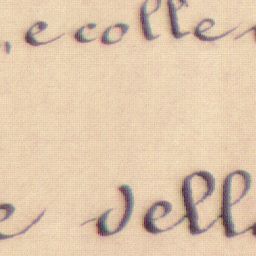 , e colle
e vell